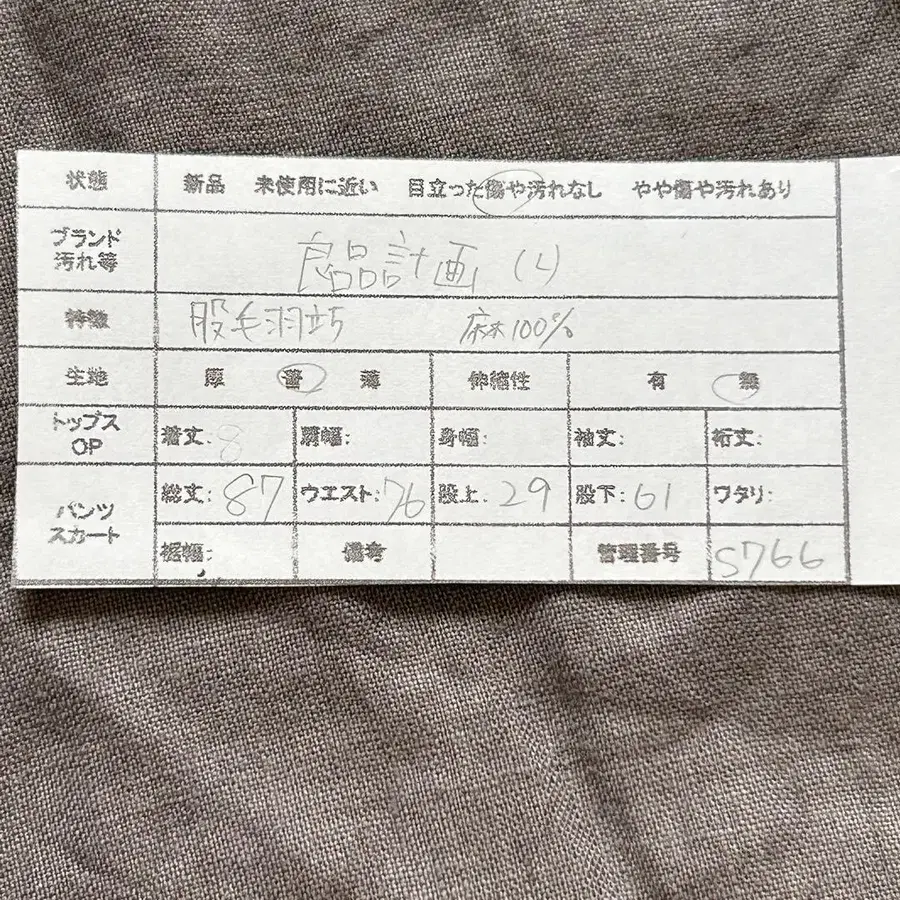 状態 新品 未使用に近い 目立った傷や汚れなし やや傷や汚れあり
ブランド
汚れ等
良品計画 (L)
特徴 股毛羽立ち 麻100%
生地 厚 普 薄 伸縮性 有 無
トップス
OP
着丈: 8 肩幅: 身幅: 袖丈: 裄丈:
パンツ
スカート
総丈: 87 ウエスト: 76 股上: 29 股下: 61 ワタリ:
裾幅: 備考 管理番号 S766